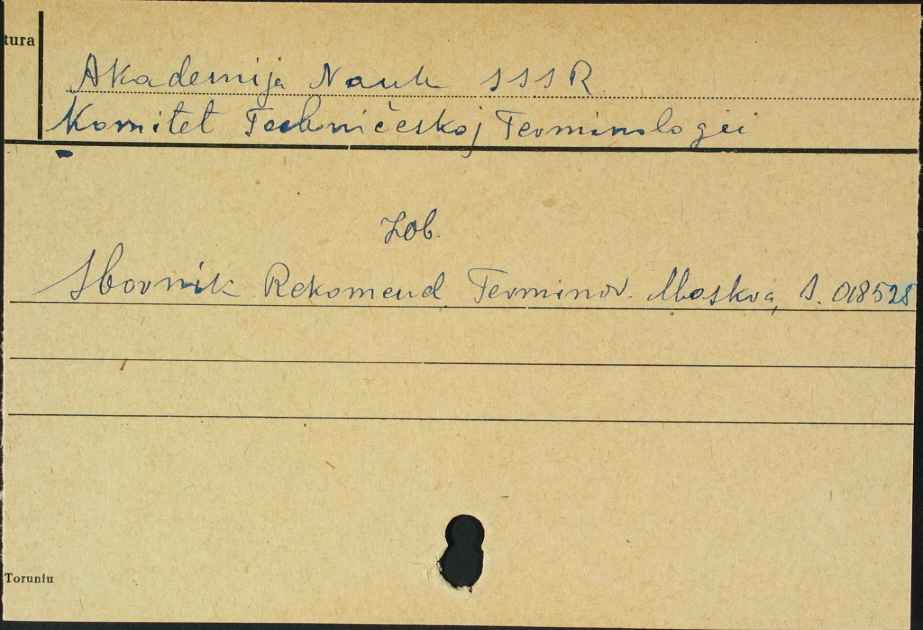 tura
Akademija Nauk SSSR
Komitet Techničeskoj Terminologii
Zob.
Sbornik Rekomend. Terminov. Moskva, S. 018528
Toruniu